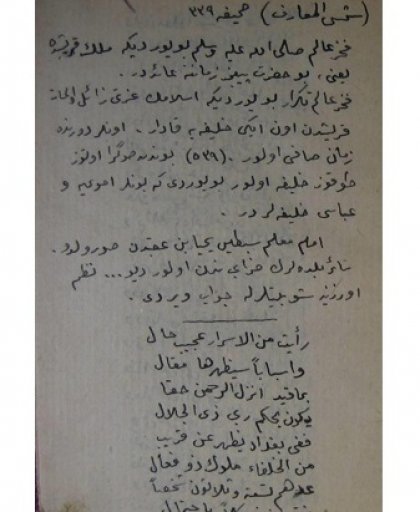 (شمس المعارف) صحيفه ٣٣٩
فخر عالم صلى الله عليه وسلم بويورديكه ملك قريشده
يعنى، بو حضرت پيغمبر زماننه عائددر.
فخر عالم تكرار بويورديكه اسلامك عزتى زائل اولماز
قريشدن اون ايكى خليفه يه قادار. اونلر دورنده
زمان صافى اولور. (٥٣٩) بوندن صوكرا اوتوز
طوقوز خليفه اولور بويوردى كه بونلر امويه و
عباسى خليفه لردر.
امام معلم سبطين يحيا بن عقبدن صورولدو.
سائر بلده لرك خرابى ندن اولور ديو... نظم
اوزرينه شو بيتلرله جواب ويردى.
رأيت من الاسرار عجيب حال
واسباباً سيظهرها مقال
بماقيد انزل الرحمن حقا
يكون بحكم ربى ذى الجلال
ففى بغداد يظهر عن قريب
من الخلفاء ملوك ذو فعال
عددهم تسعة وثلاثون شخصاً